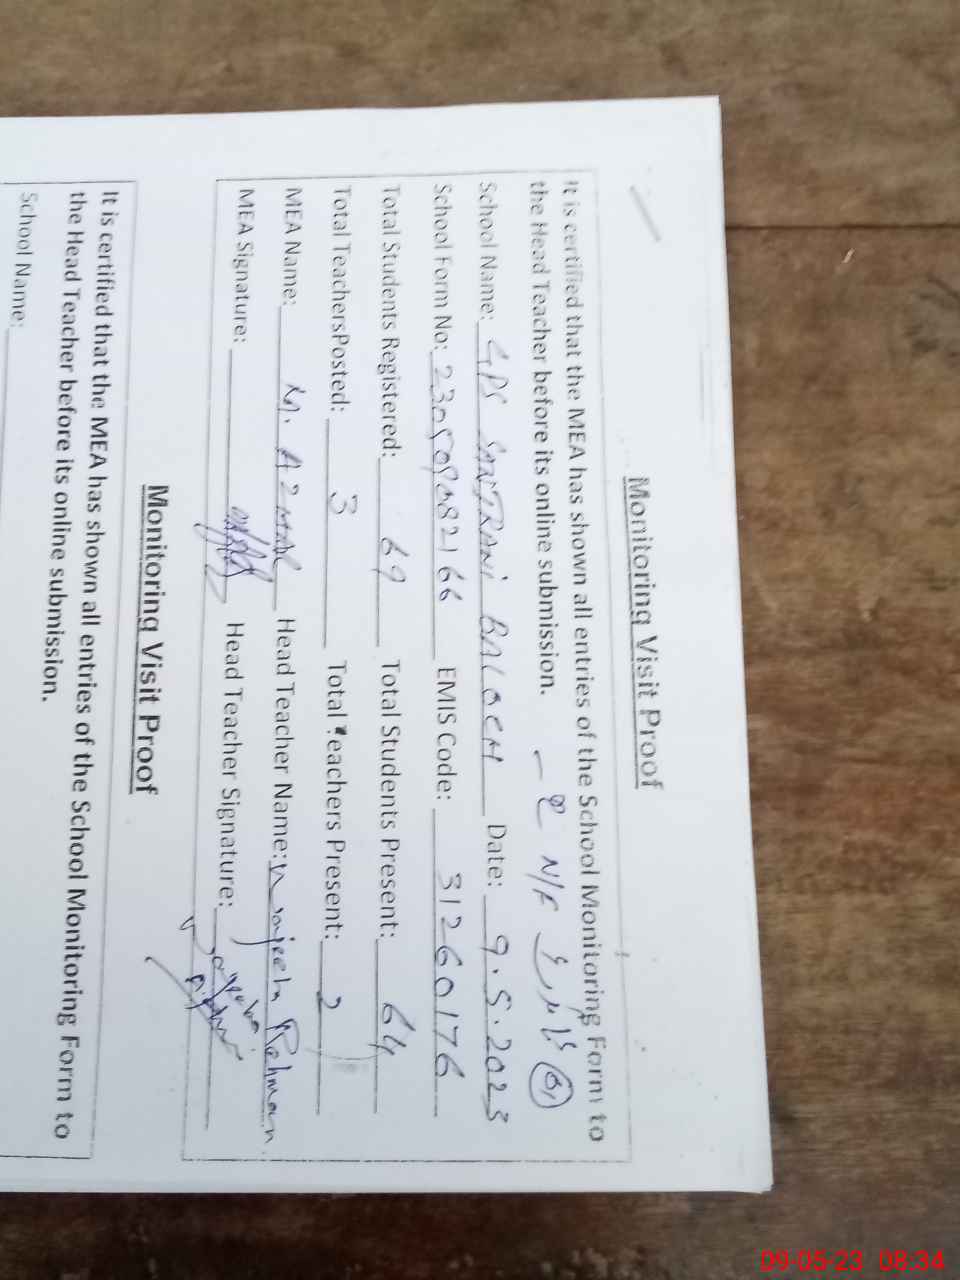 Monitoring Visit Proof
It is certified that the MEA has shown all entries of the School Monitoring Form to
the Head Teacher before its online submission.
School Name: GPS BALOCH Date: 9.5.2023
School Form No: EMIS Code: 31260176
Total Students Registered: 69 Total Students Present: 64
Total TeachersPosted: 3 Total Teachers Present: 2
MEA Name: M. Head Teacher Name: Rehman
MEA Signature: Head Teacher Signature:
Monitoring Visit Proof
It is certified that the MEA has shown all entries of the School Monitoring Form to
the Head Teacher before its online submission.
School Name:
09-05-23 08:34